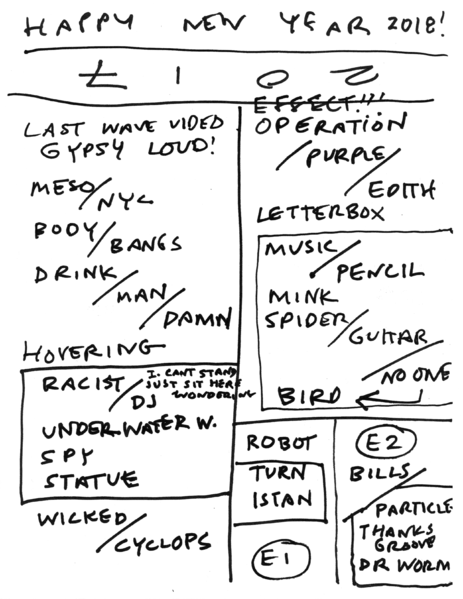 HAPPY NEW YEAR 2018!
LAST WAVE VIDEO
GYPSY LOUD!
MESO/NYC
BODY/BANGS
DRINK/MAN/DAMN
HOVERING
RACIST/DJ
I CANT STAND
JUST SIT HERE
WONDERING
UNDERWATER W.
SPY
STATUE
WICKED/CYCLOPS
EFFECT!!!
OPERATION
/PURPLE/EDITH
LETTERBOX
MUSIC/PENCIL
MINK
SPIDER/GUITAR
/NO ONE
BIRD
ROBOT
TURN
ISTAN
E1
E2
BILLS/
PARTICLE
THANKS
GROOVE
DR WORM